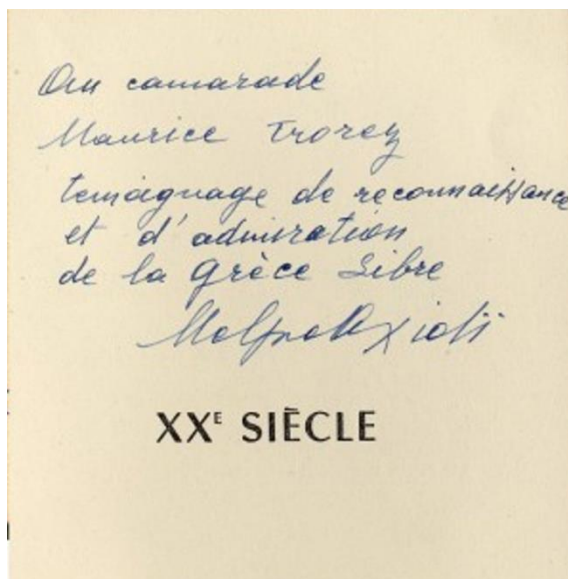 Au camarade
Maurice Trorez
temoignage de reconnaissance
et d'admiration
de la Grèce Libre
Melpo Axioti
XXE SIÈCLE